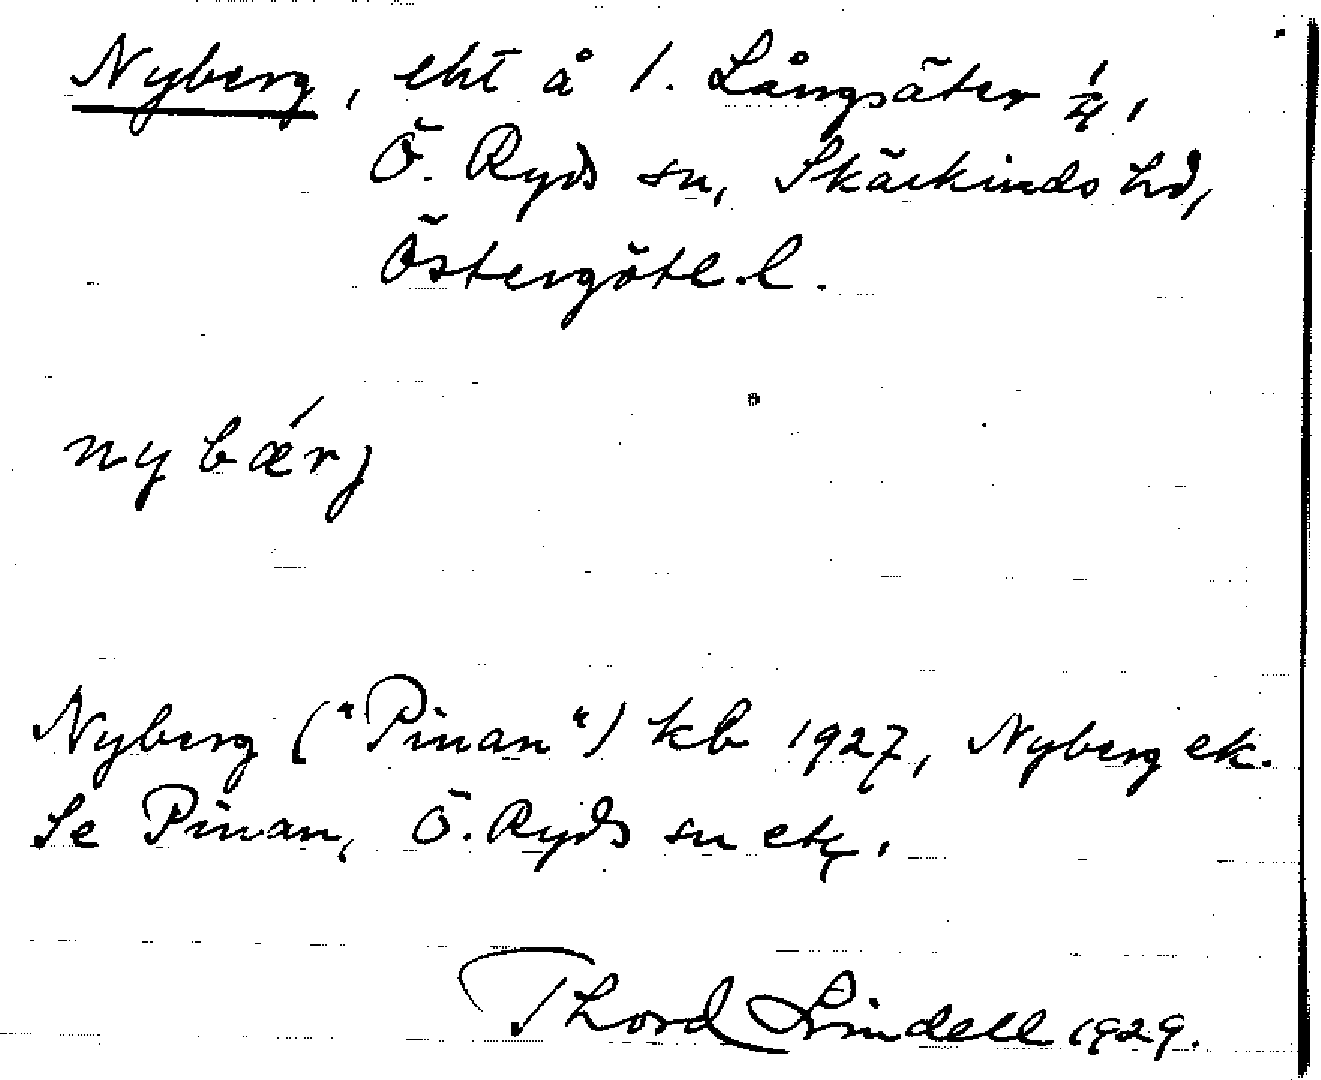 Nyberg, lht å 1. Långsäter 1/4,
Ö. Ryds sn, Skärkinds hd,
Östergötl. l.
nybǽrj
Nyberg ("Pinan") kb 1927, Nyberg ek.
Se Pinan, Ö. Ryds sn etc.
Thord Lindell 1929.